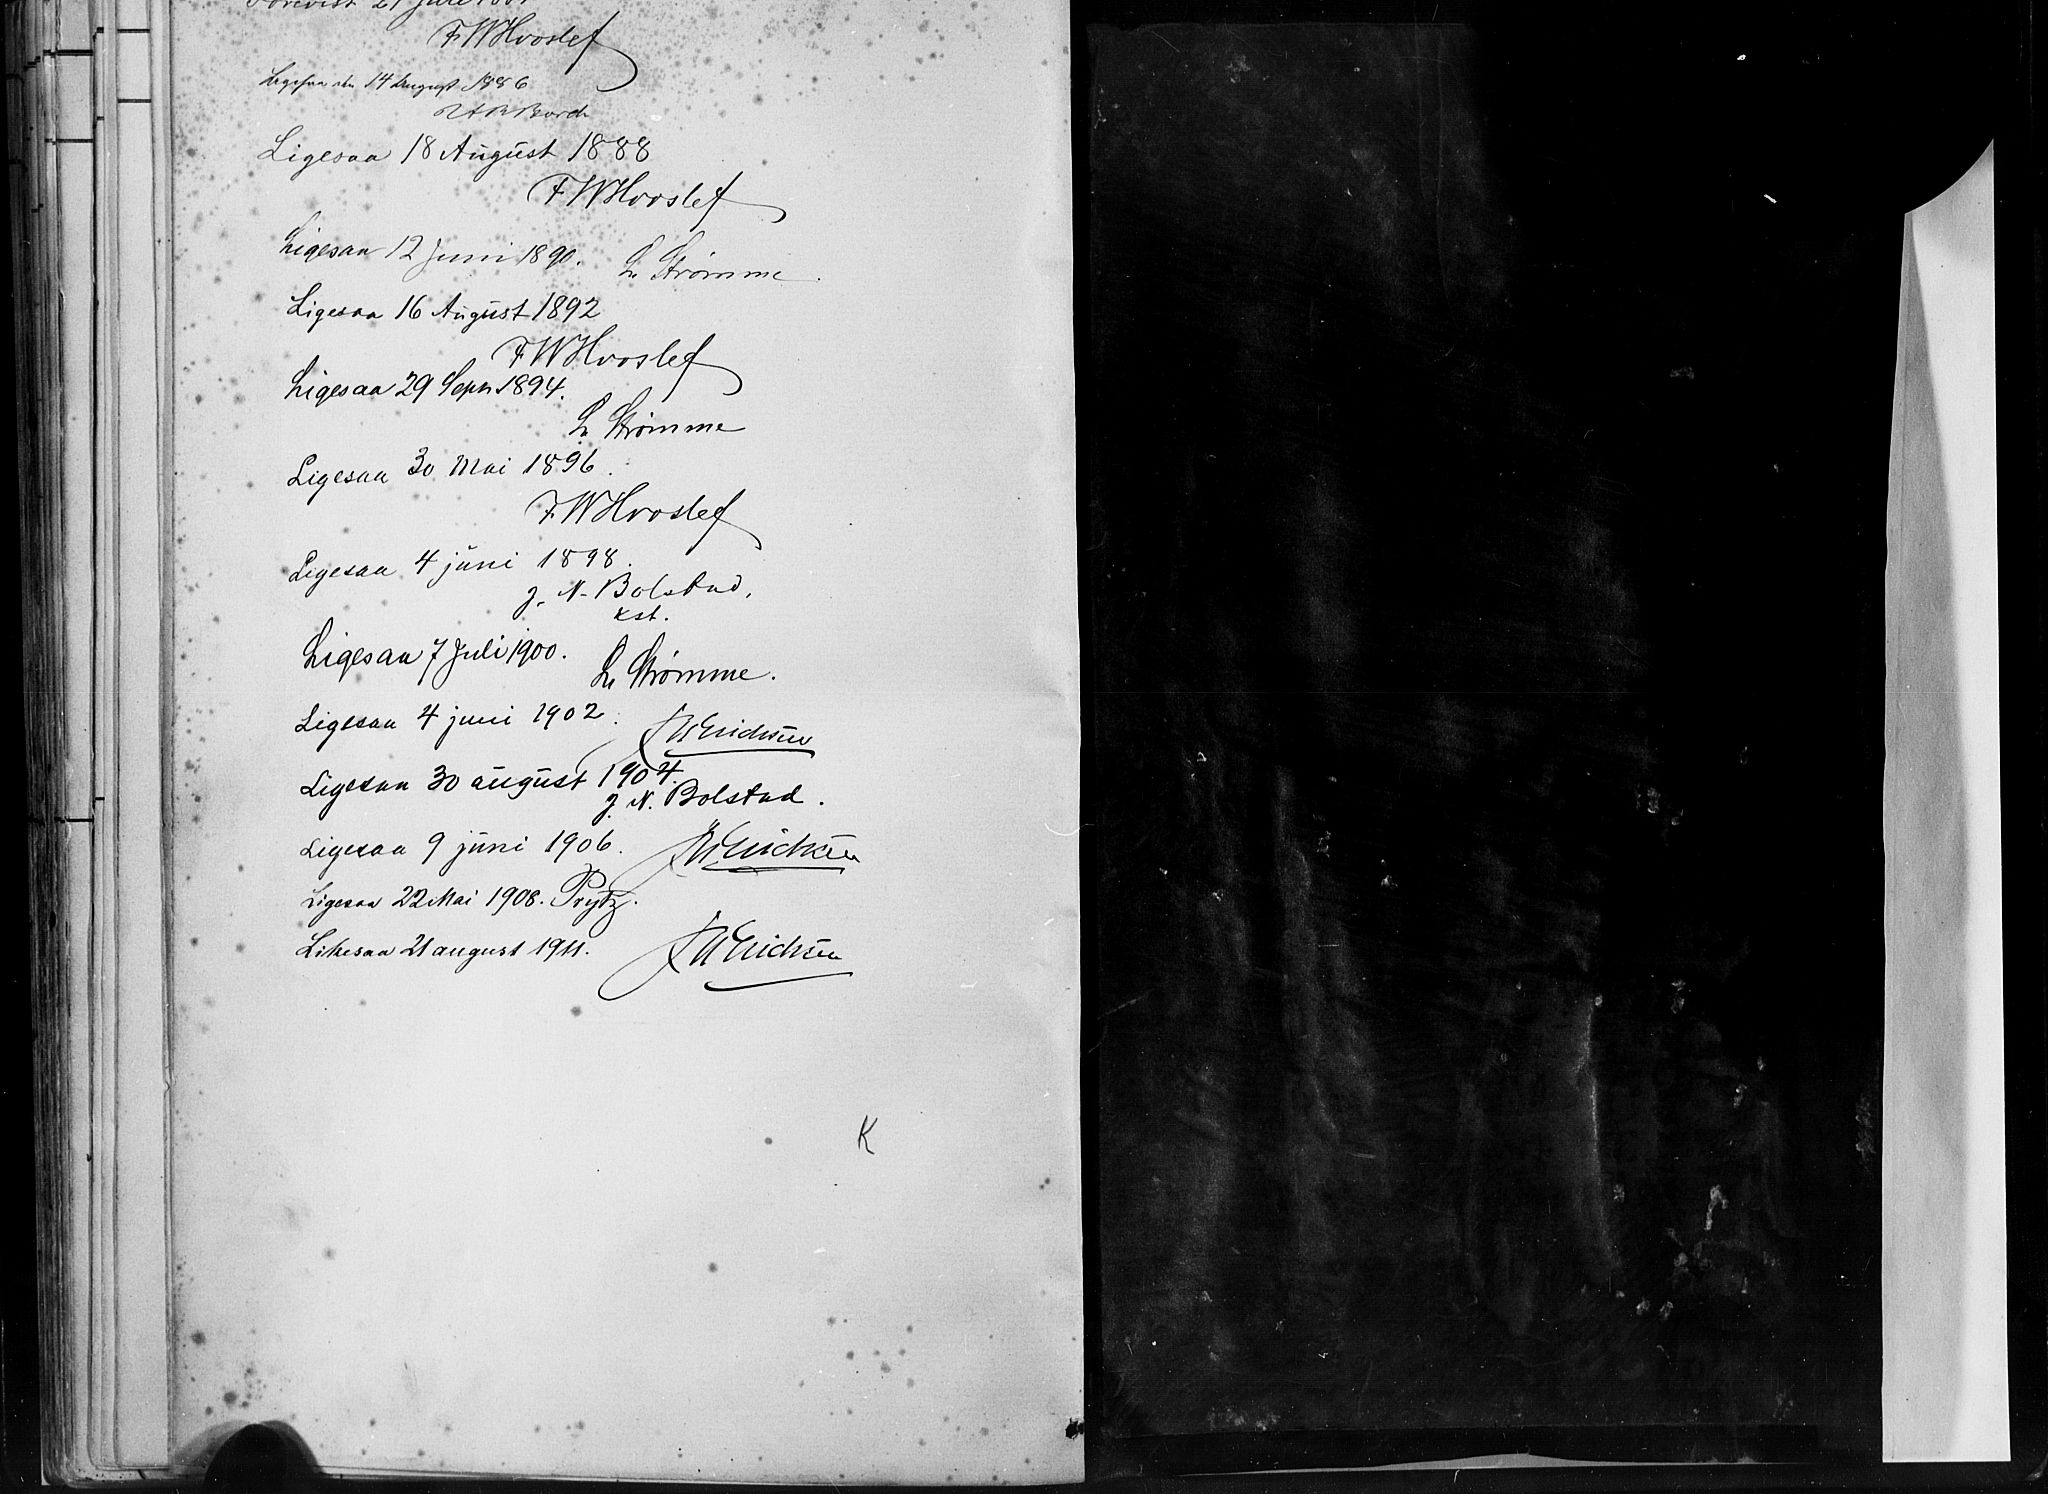 21 Juli
FWHvoslef
Ligesaa den 14 August 1886
Ligesaa 18 August 1888
FWHvoslef
Ligesaa 12 Juni 1890. L. Strømme.
Ligesaa 16 August 1892
FWHvoslef
Ligesaa 29 Septr 1894.
L. Strømme
Ligesaa 30 Mai 1896.
F.WHvoslef
Ligesaa 4 juni 1898.
J. N. Bolstad,
kst.
Ligesaa 7 Juli 1900.
L. Strømme.
Ligesaa 4 juni 1902.
Erichsen
Ligesaa 30 august 1904.
J. N. Bolstad.
Ligesaa 9 juni 1906. Erichsen
Ligesaa 22 Mai 1908. Prytz.
Likesaa 21 august 1911. Erichsen
K